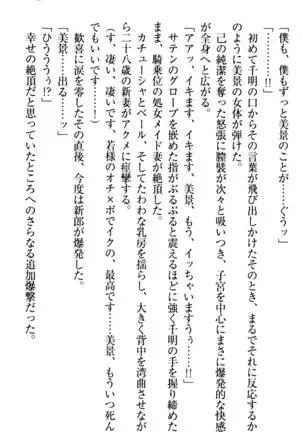 「僕、僕もずっと美景のことが……ぐうッ」
初めて千明の口からその言葉が飛び出しかけたそのとき、まるでそれに反応するか
のように美景の女体が弾けた。
己の純潔を奪った怒張に膣襞が次々と吸いつき、子宮を中心にまさに爆発的な快感
が全身へと広がる。
「アアッ、イキます、イキます、美景、もう、イッちゃいま
すうぅ……!!」
騎乗位の処女メイド妻が頂した。
サテンのグローブを嵌めた指がぶるぶると震えるほどに強く千明の手を握り締めた
まま、
カチューシャとベール、そしてたわわな乳房を揺らし、大きく背中を湾曲させなが
ら二十八歳の新妻がアクメに痙攣する。
「す、凄い、凄いです、若様のオチ×ポでイクの、最高です……美景、もういつ死ん
でもいいです……！」
歓喜に涙を零したその直後、今度は新郎が爆発した。
「美景……出る……ッ」
「ひうううぅ!?」
幸せの絶頂だと思っていたところへのさらなる追加爆撃だった。